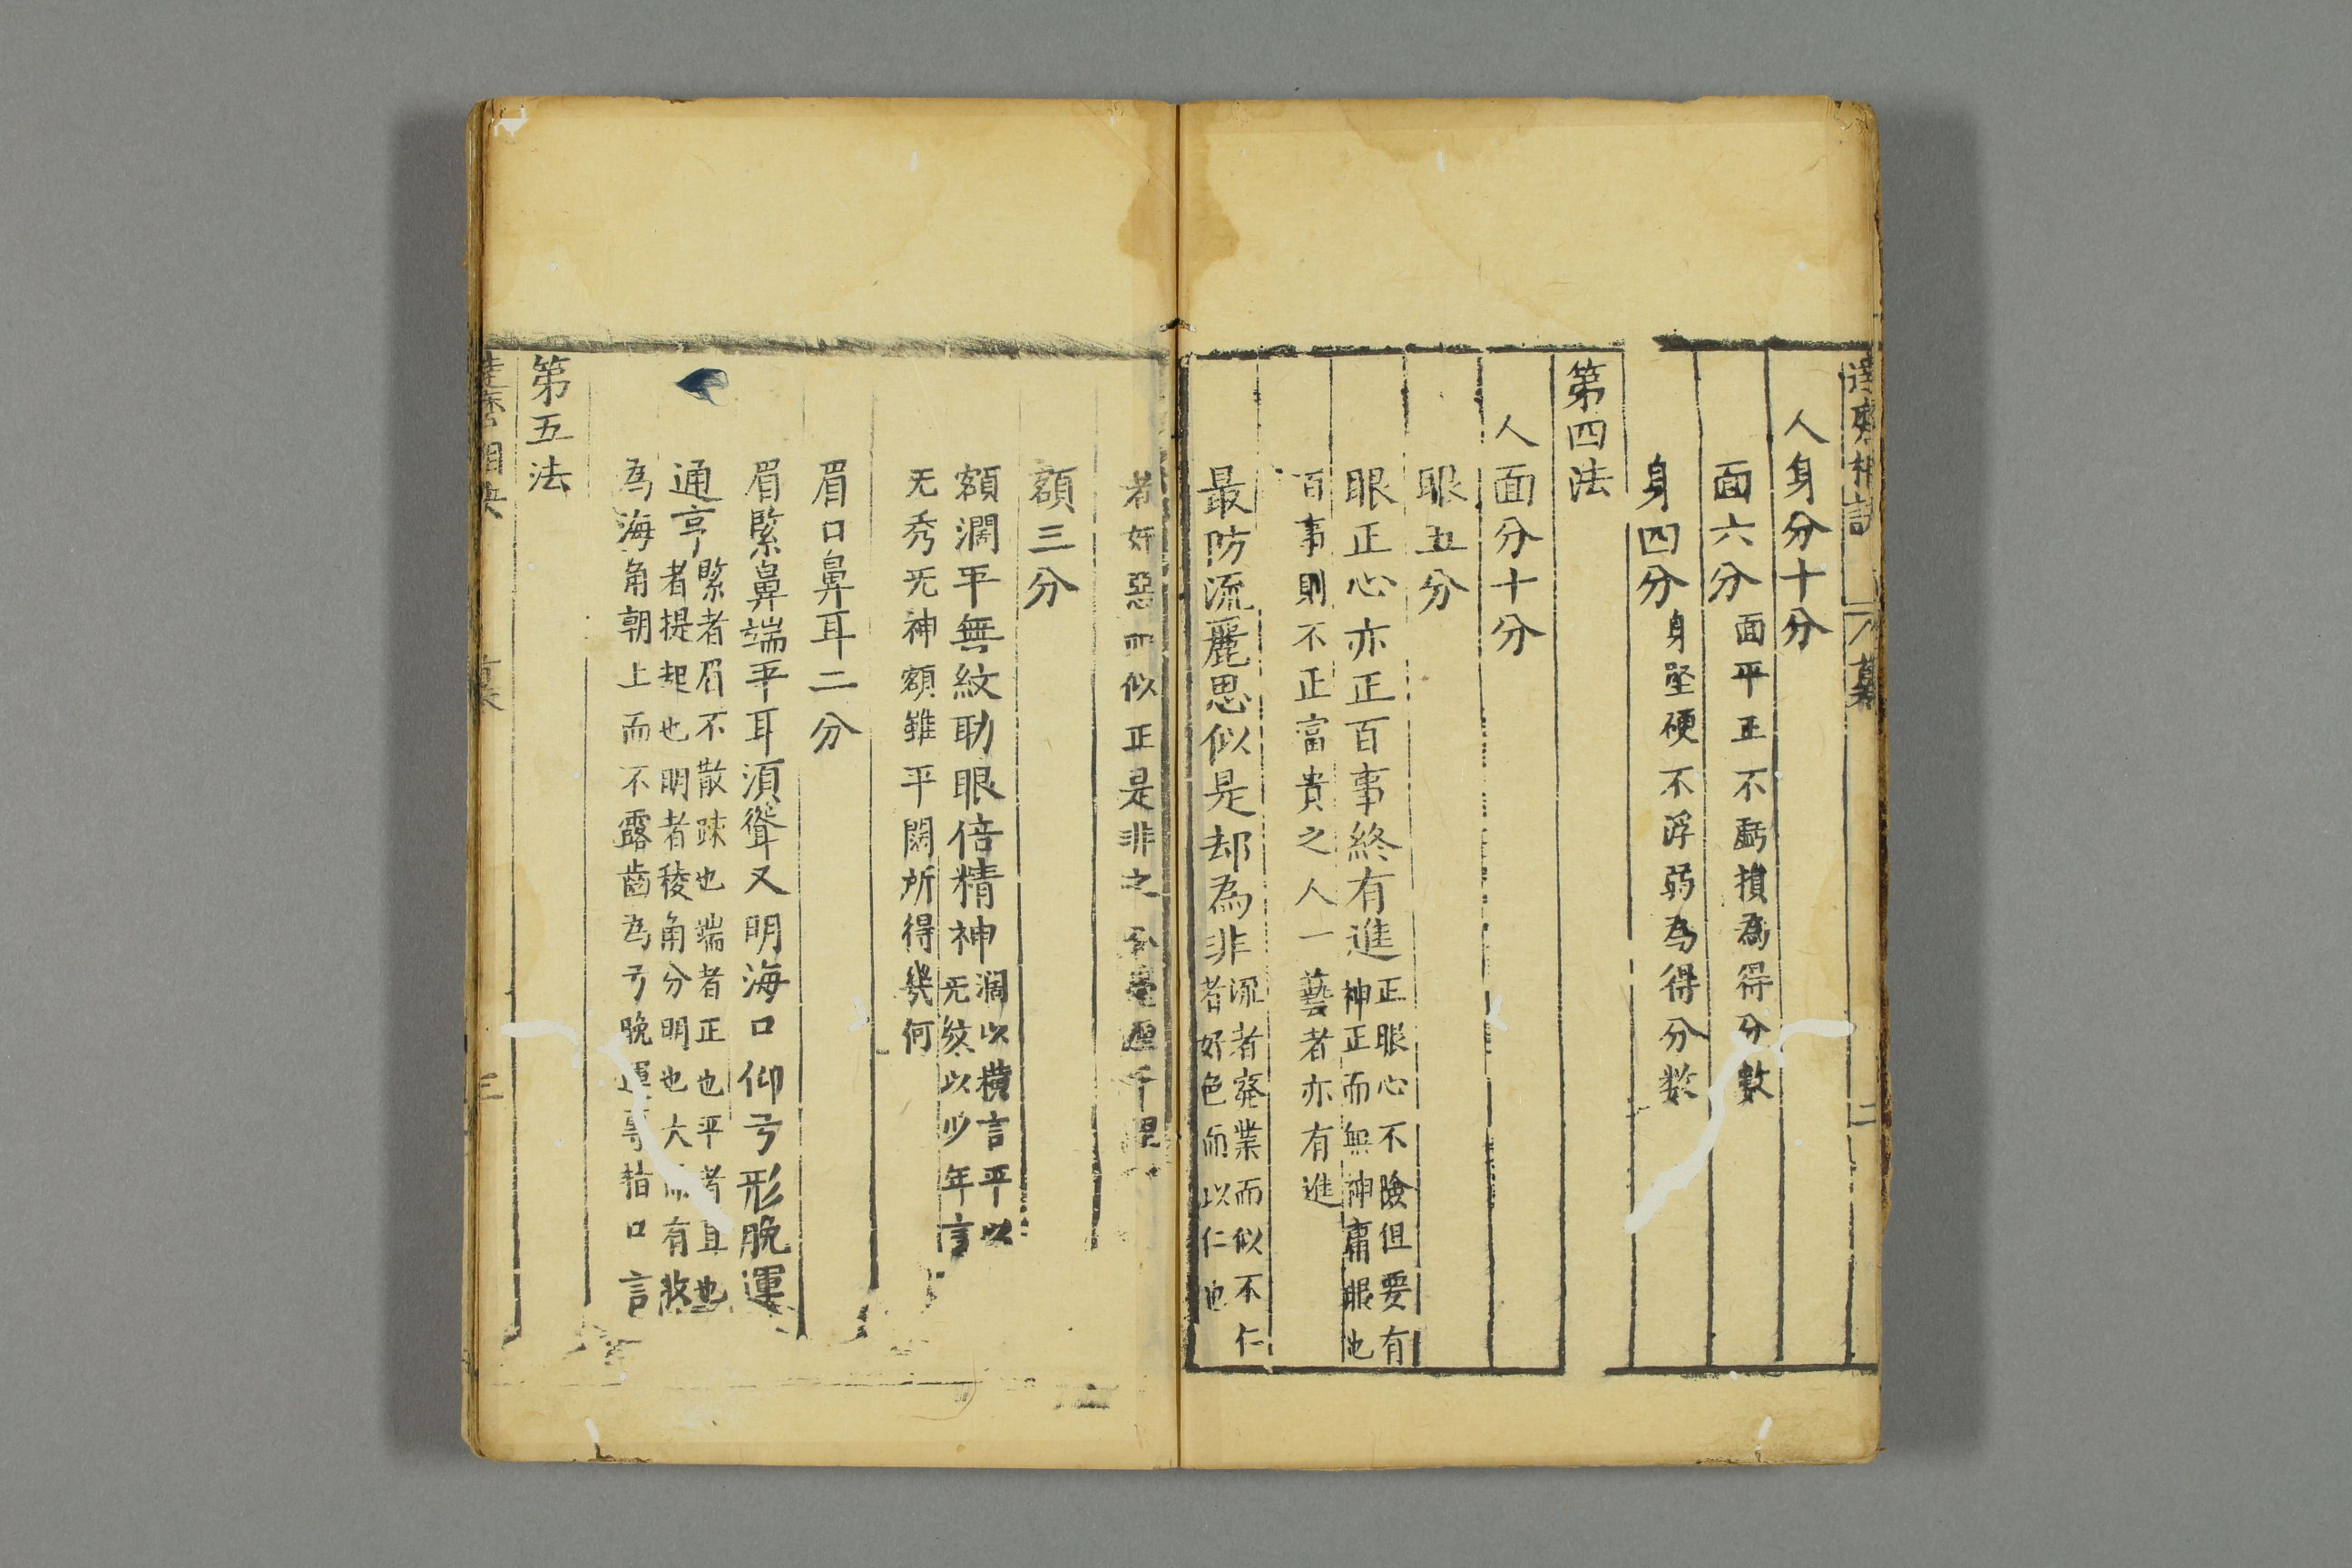 達磨相訣 卷 二
人身分十分
面六分 面平正不虧損為得分數
身四分 身坚硬不浮弱為得分数
第四法
人面分十分
眼五分
眼正心亦正百事終有進 正眼心不險但要有
神正而無神庸眼也
百事則不正富貴之人一藝者亦有進
最防流麗思似是却為非 流者廃業而似不仁
者好色而以仁也
者奸惡而似正是非之分毫厘千里
額三分
額濶平無紋助眼倍精神 濶以横言平以
无紋以少年言
无秀无神額雖平闊所得幾何
眉口鼻耳二分
眉緊鼻端平耳須聳又明海口仰弓形晚運
通亨 緊者眉不散踈也端者正也平者直也
者提起也明者稜角分明也大而有收
為海角朝上而不露齒為弓晚運専指口言
第五法
達磨相訣 卷 三